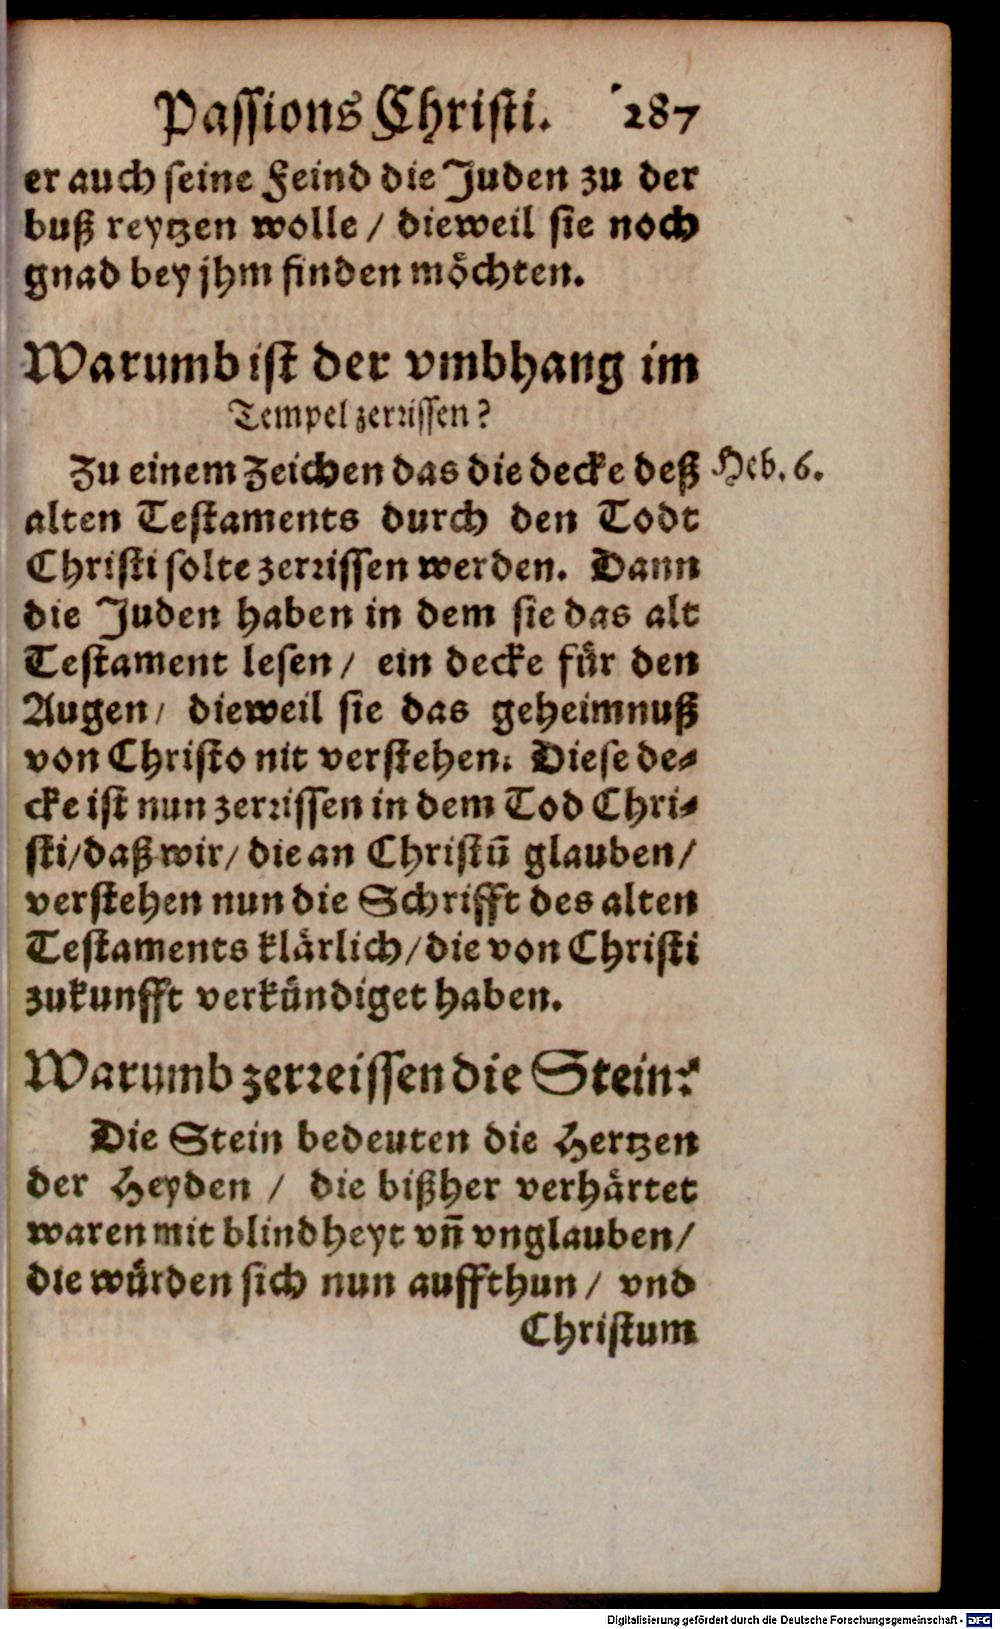 Passions Christi. 287
er auch seine Feind die Juden zu der
buß reytzen wolle / dieweil sie noch
gnad bey jhm finden möchten.
Warumb ist der vmbhang im
Tempel zerrissen?
Zu einem Zeichen das die decke deß Heb. 6.
alten Testaments durch den Todt
Christi solte zerrissen werden. Dann
die Juden haben in dem sie das alt
Testament lesen / ein decke für den
Augen / dieweil sie das geheimnuß
von Christo nit verstehen. Diese de-
cke ist nun zerrissen in dem Tod Chri-
sti / daß wir / die an Christū glauben /
verstehen nun die Schrifft des alten
Testaments klärlich / die von Christi
zukunfft verkündiget haben.
Warumb zerreissen die Stein?
Die Stein bedeuten die Hertzen
der Heyden / die bißher verhärtet
waren mit blindheyt vn̄ vnglauben /
die würden sich nun auffthun / vnd
Christum
Digitalisierung gefördert durch die Deutsche Forschungsgemeinschaft - DFG